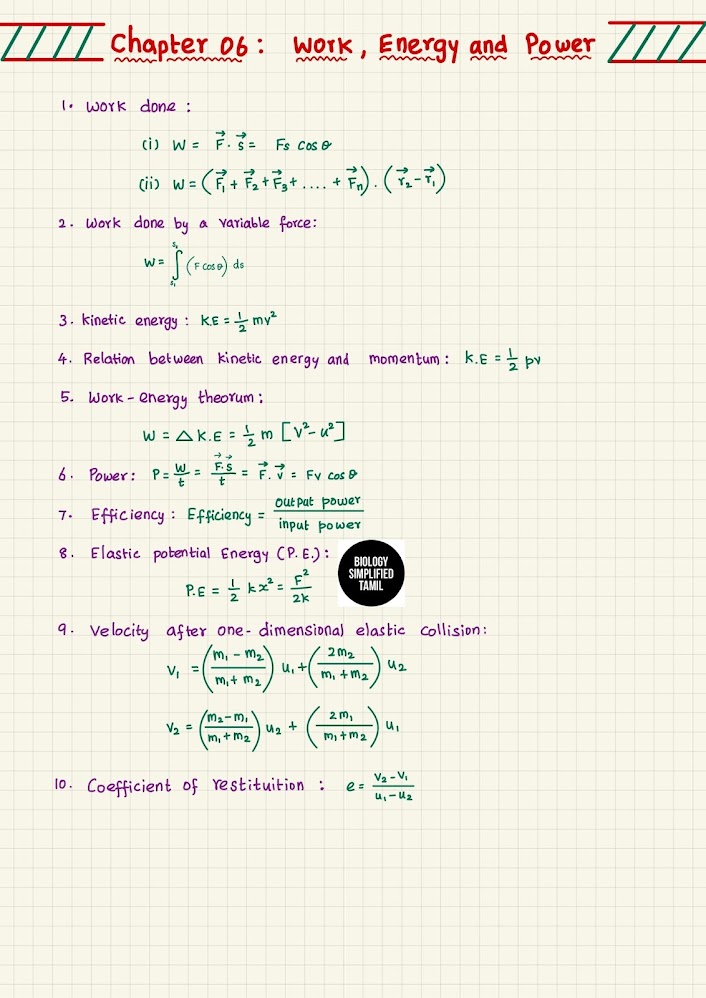 Chapter 06: Work, Energy and Power
1. Work done :
(i) W = F⃗ . s⃗ = Fs cos θ
(ii) W = (F⃗₁ + F⃗₂ + F⃗₃ + .... + F⃗n) . (r⃗₂ - r⃗₁)
2. Work done by a variable force:
W = ∫ₛ₁^s₂ (F cos θ) ds
3. Kinetic energy : K.E = 1/2 mv²
4. Relation between kinetic energy and momentum : K.E = 1/2 pv
5. Work-energy theorum :
W = △ K.E = 1/2 m [v² - u²]
6. Power: P = W/t = F⃗.s⃗/t = F⃗ . v⃗ = Fv cos θ
7. Efficiency : Efficiency = output power / input power
8. Elastic potential Energy (P.E.) :
P.E = 1/2 kx² = F²/2k
BIOLOGY
SIMPLIFIED
TAMIL
9. Velocity after one-dimensional elastic collision:
v₁ = ((m₁ - m₂)/(m₁ + m₂)) u₁ + (2m₂/(m₁ + m₂)) u₂
v₂ = ((m₂ - m₁)/(m₁ + m₂)) u₂ + (2m₁/(m₁ + m₂)) u₁
10. Coefficient of restituition : e = (v₂ - v₁)/(u₁ - u₂)